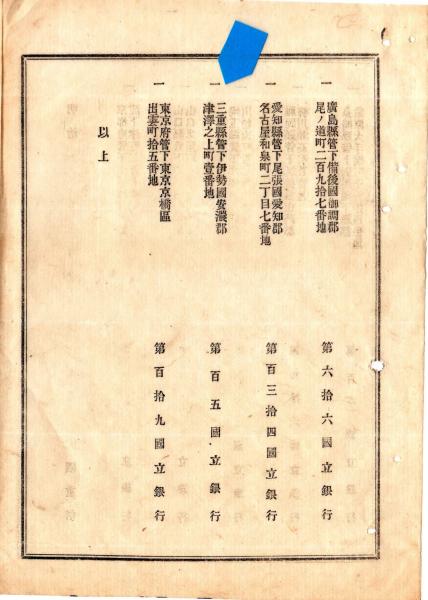 一
廣島縣管下備後國御調郡
尾ノ道町二百九拾七番地
第六拾六國立銀行
一
愛知縣管下尾張國愛知郡
名古屋和泉町二丁目七番地
第百三拾四國立銀行
一
三重縣管下伊勢國安濃郡
津澤之上町壹番地
第百五國立銀行
一
東京府管下東京京橋區
出雲町拾五番地
第百拾九國立銀行
以上